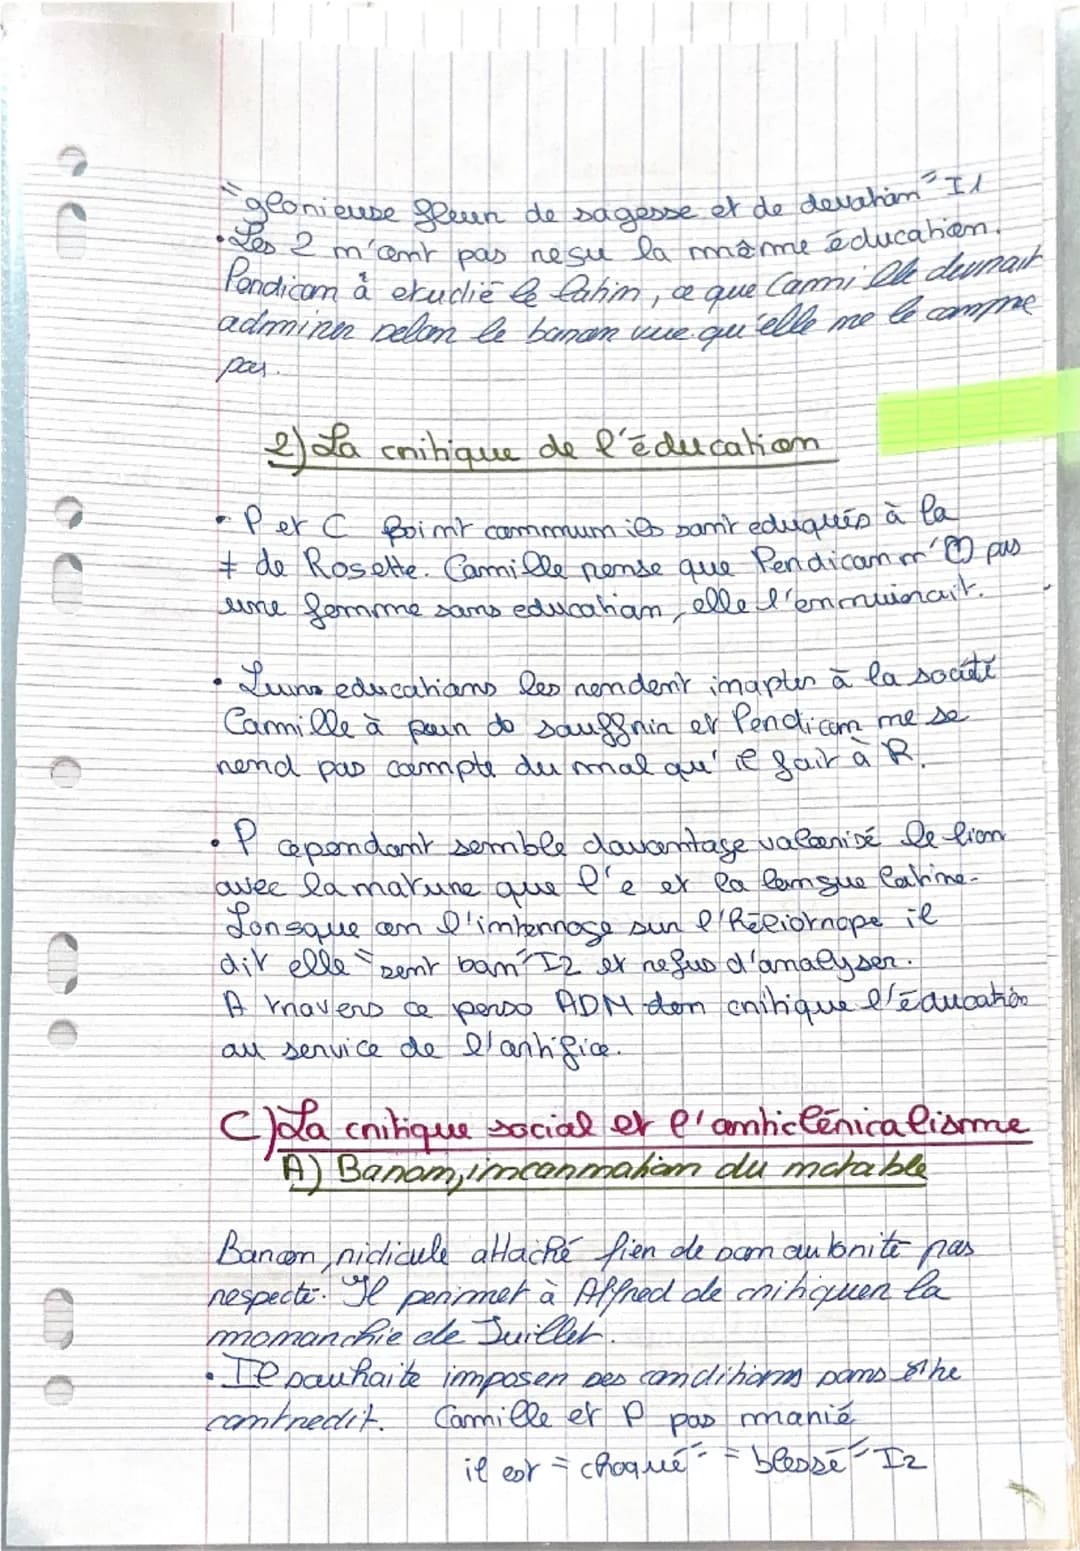 "glorieuse fleur de sagesse et de dévotion" I1
• Les 2 n'ont pas reçu la même éducation.
Perdican à étudié le latin, ce que Camille devrait
admirer selon le baron vue qu'elle ne le comprend
pas.
2) La critique de l'éducation
• P et C point commun ils sont eduqués à la
≠ de Rosette. Camille pense que Perdican n' pas
une femme sans education, elle l'ennuirait.
• Leurs educations les rendent inaptes à la société
Camille à peur de souffrir et Perdican ne se
rend pas compte du mal qu'il fait à R.
• P cependant semble davantage valorisé le lien
avec la nature que l'e et la langue latine.
Lorsque on l'interroge sur l'Héliotrope il
dit elle "sent bon" I2 et refus d'analyser.
A travers ce perso ADM don critique l'éducation
au service de l'artifice.
C) La critique social et l'anticléricalisme
A) Baron, incarnation du notable
Baron, ridicule attaché fier de son autorité pas
respecté. Il permet à Alfred de critiquer la
monarchie de Juillet.
• Il souhaite imposer ses conditions sans être
contredit. Camille et P pas marié
il est "choqué" "blessé" I2